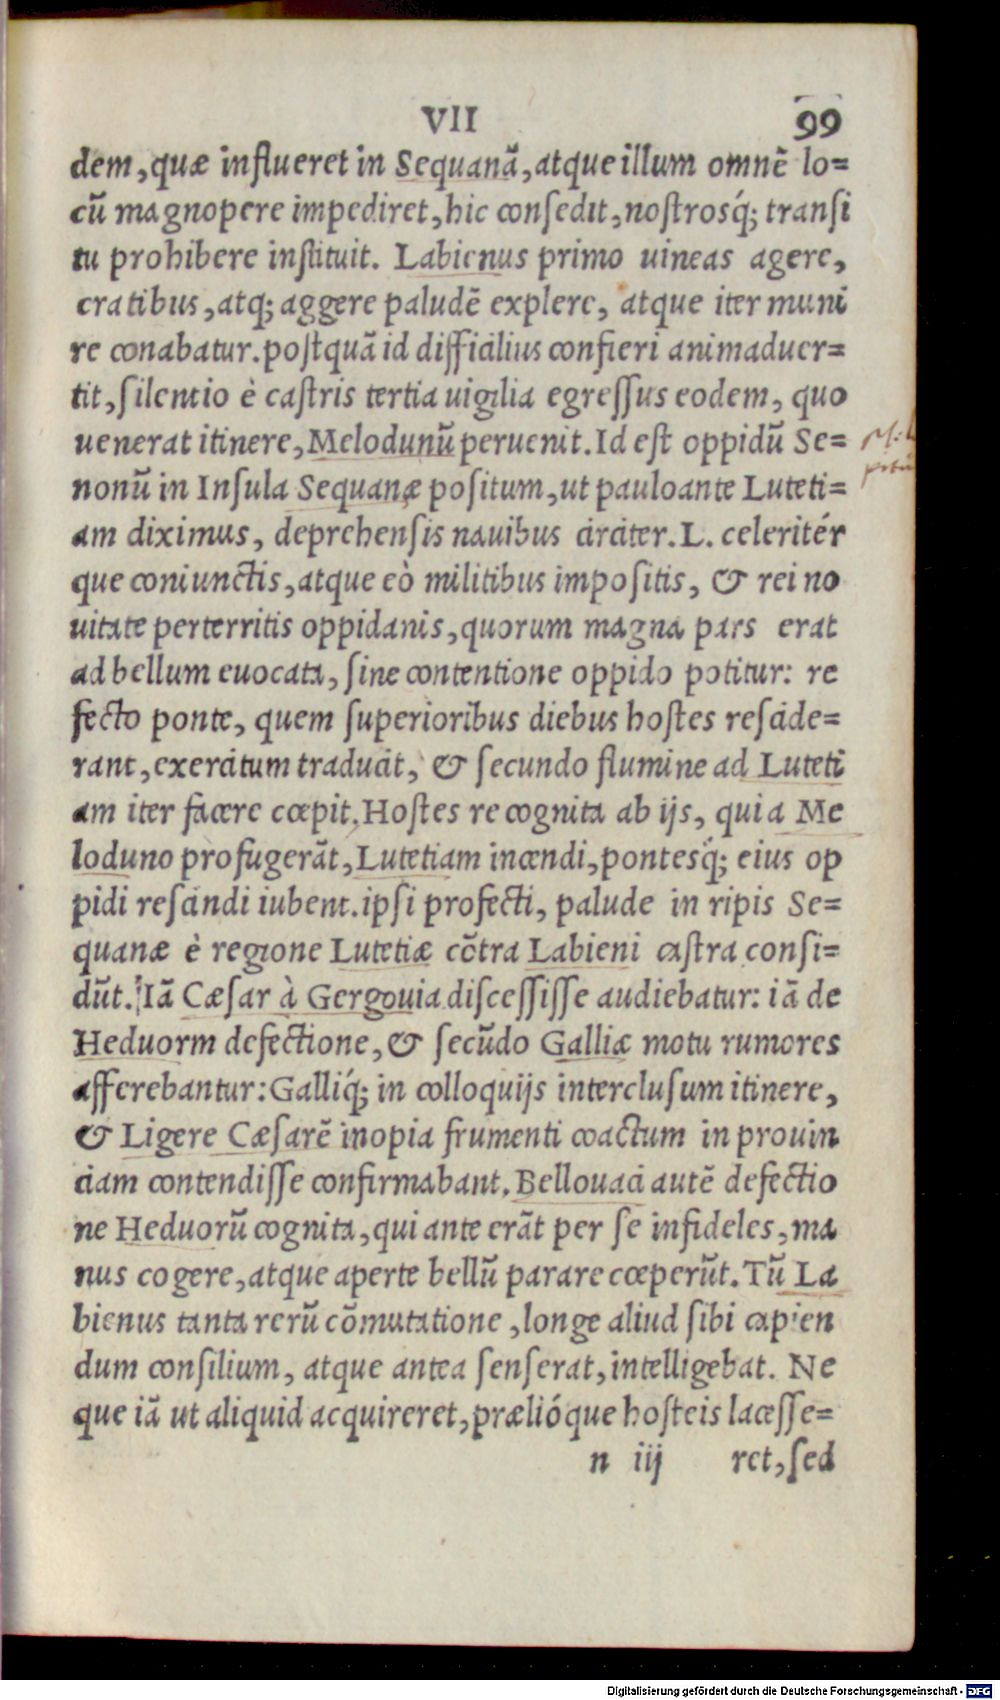 VII 99
dem, quæ influeret in Sequanā, atque illum omnē lo=
cū magnopere impediret, hic consedit, nostrosq́; transi
tu prohibere instituit. Labienus primo uineas agere,
cratibus, atq; aggere paludē explere, atque iter muni
re conabatur. postquā id difficilius confieri animaduer=
tit, silentio è castris tertia uigilia egressus eodem, quo
uenerat itinere, Melodunū peruenit. Id est oppidū Se=
nonū in Insula Sequanæ positum, ut pauloante Luteti=
am diximus, deprehensis nauibus circiter. L. celeritér
que coniunctis, atque eò militibus impositis, & rei no
uitate perterritis oppidanis, quorum magna pars erat
ad bellum euocata, sine contentione oppido potitur: re
fecto ponte, quem superioribus diebus hostes rescide=
rant, exercitum traducit, & secundo flumine ad Luteti
am iter facere cœpit. Hostes re cognita ab ijs, qui a Me
loduno profugerāt, Lutetiam incendi, pontesq́; eius op
pidi rescindi iubent. ipsi profecti, palude in ripis Se=
quanæ è regione Lutetiæ cōtra Labieni castra consi=
dūt. Iā Cæsar à Gergouia discessisse audiebatur: iā de
Heduorm defectione, & secūdo Galliæ motu rumores
afferebantur: Galliq́; in colloquijs interclusum itinere,
& Ligere Cæsarē inopia frumenti coactum in prouin
ciam contendisse confirmabant. Bellouaci autē defectio
ne Heduorū cognita, qui ante erāt per se infideles, ma
nus cogere, atque aperte bellū parare cœperūt. Tū La
bienus tanta rerū cōmutatione, longe aliud sibi capien
dum consilium, atque antea senserat, intelligebat. Ne
que iā ut aliquid acquireret, prælióque hosteis lacesse=
n iij ret, sed
Digitalisierung gefördert durch die Deutsche Forschungsgemeinschaft - DFG